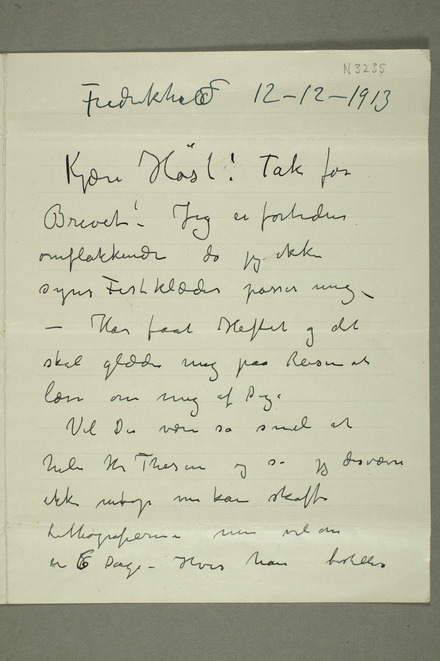 N 3235
Fredrikshald 12-12-1913
Kjære Høst! Tak for
Brevet! – Jeg er fortiden
omflakkende da jeg ikke
synes Festklæder passer mig –
– Har faat Heftet og det
skal glæde mig paa Reisen at
læse om mig af Dig.
Vil De være så snil at
hilse Hr Thesen og si jeg desværre
ikke nu kan skaffe
Lithografierne men vel om
en 6 Dage – Hvis han